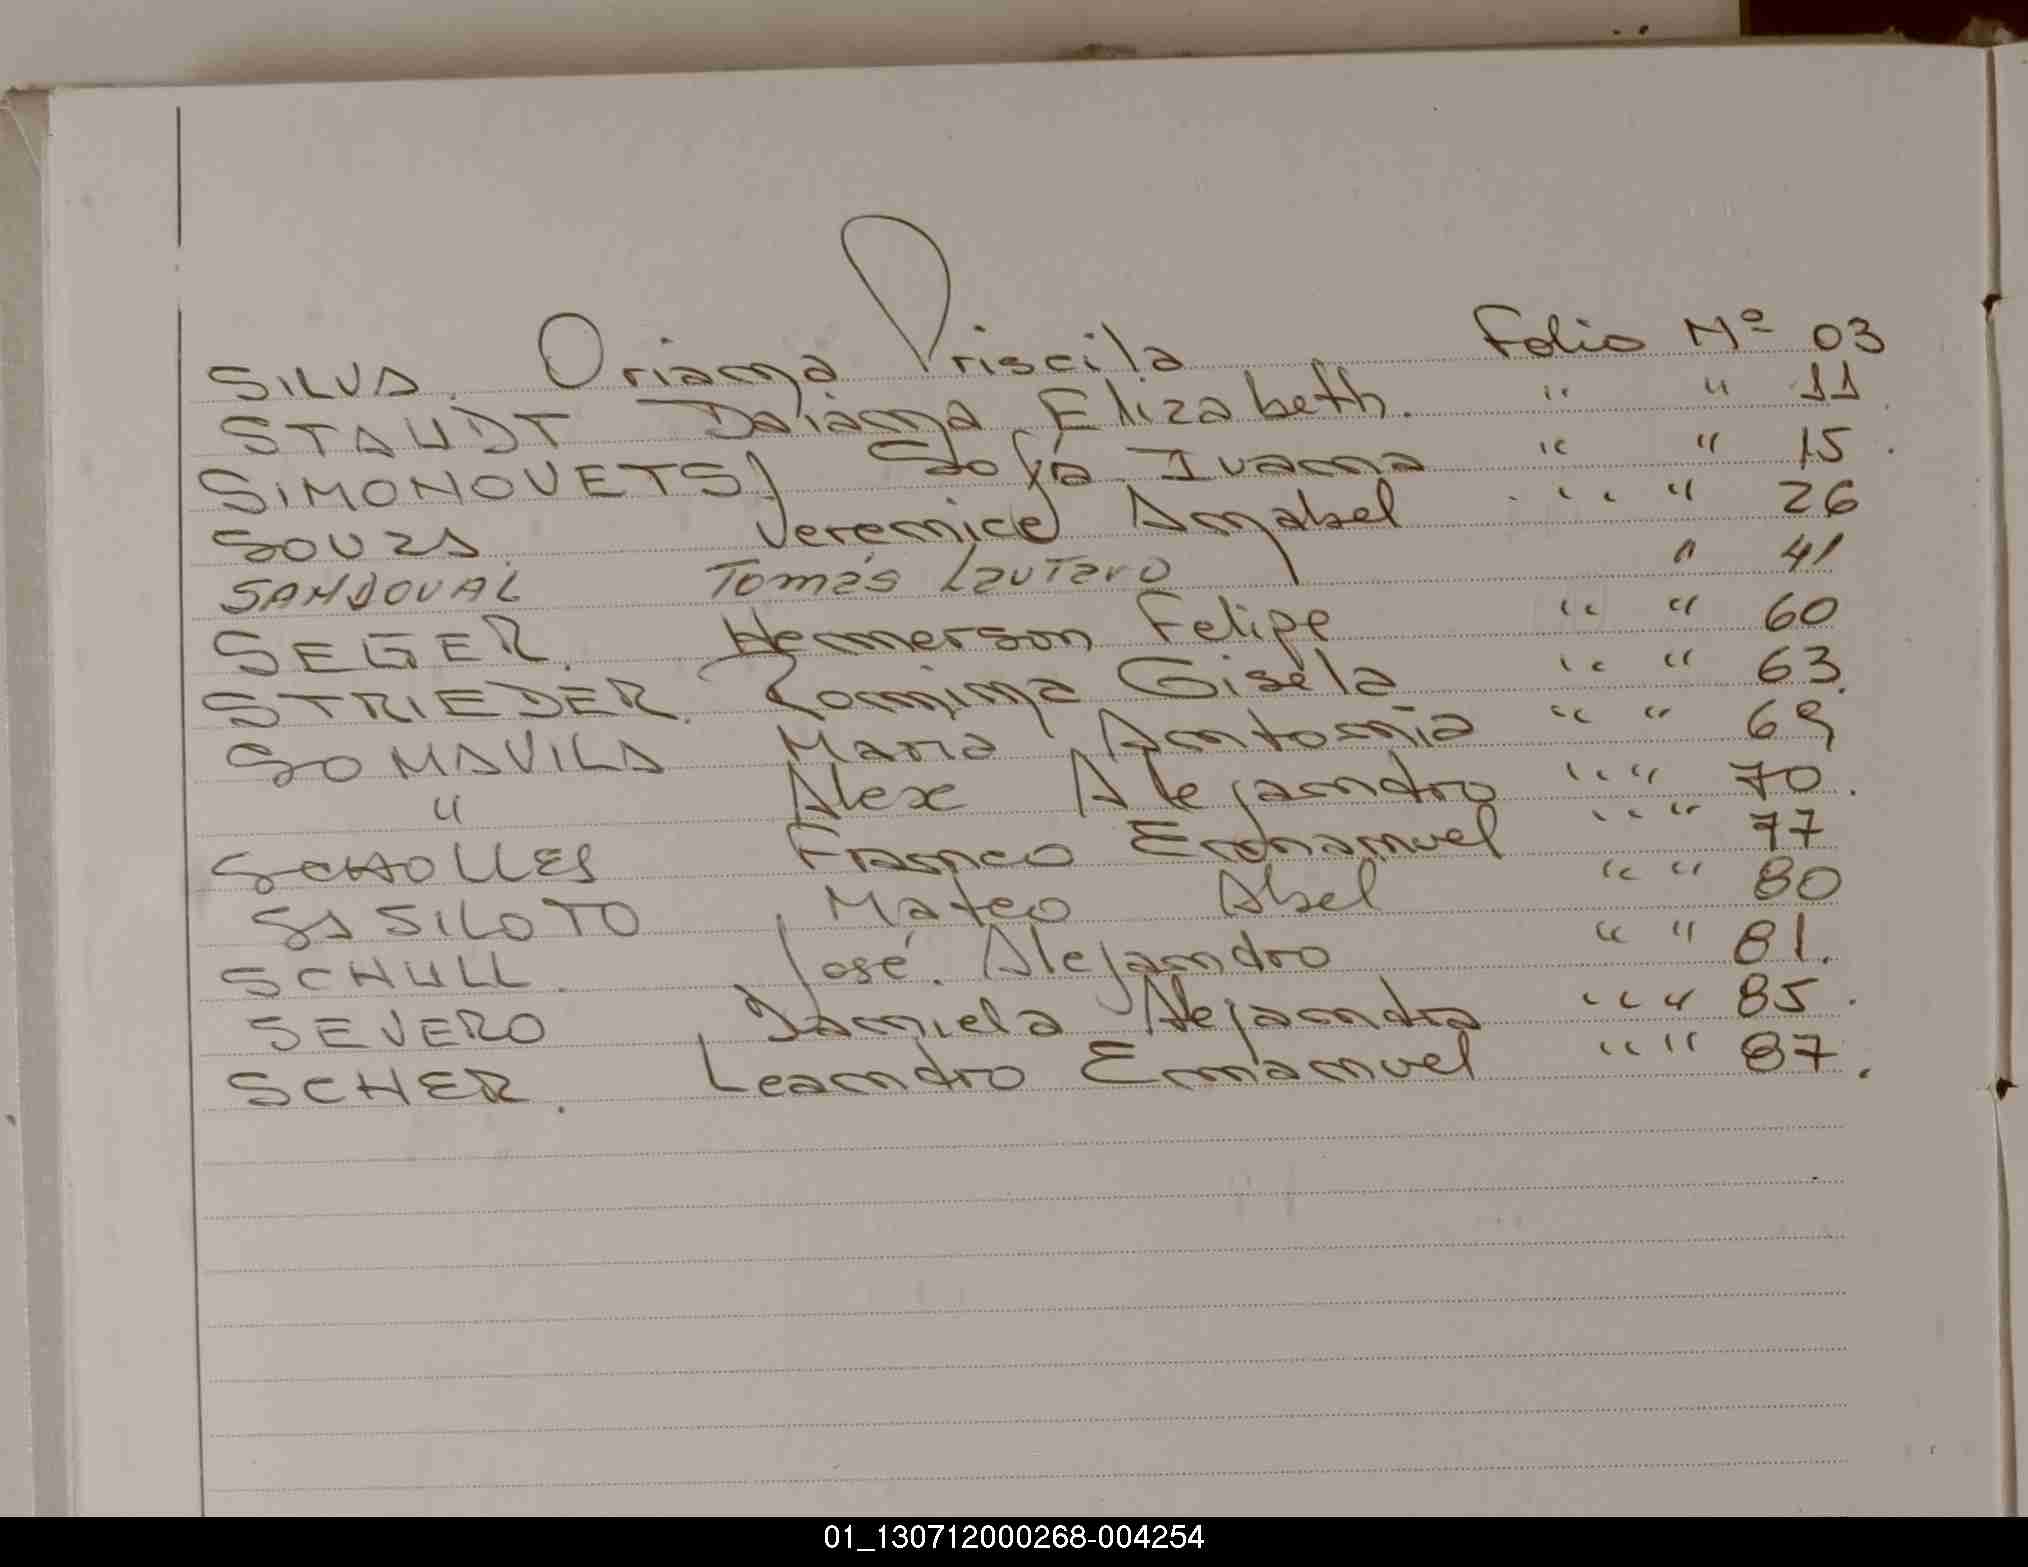 SILVA. Oriana Priscila Folio Nº 03
STAUDT Daiana Elizabeth. " " 11
SIMONOVETSJ Sofía Ivanna " " 15.
SOUZA Verenice Anabel " " 26
SANDOVAL Tomás Lautaro " 41
SEGER. Hemerson Felipe " " 60
STRIEDER. Romina Gisela " " 63.
SOMAVILA Maria Antonia " " 69
" Alex Alejandro " " 70.
SCHOLLES Franco Emmanuel " " 77
SASILOTO Mateo Abel " " 80
SCHULL. José. Alejandro " " 81.
SEVERO Daniela Alejandra " " 85.
SCHER. Leandro Emanuel " " 87.
01_130712000268-004254